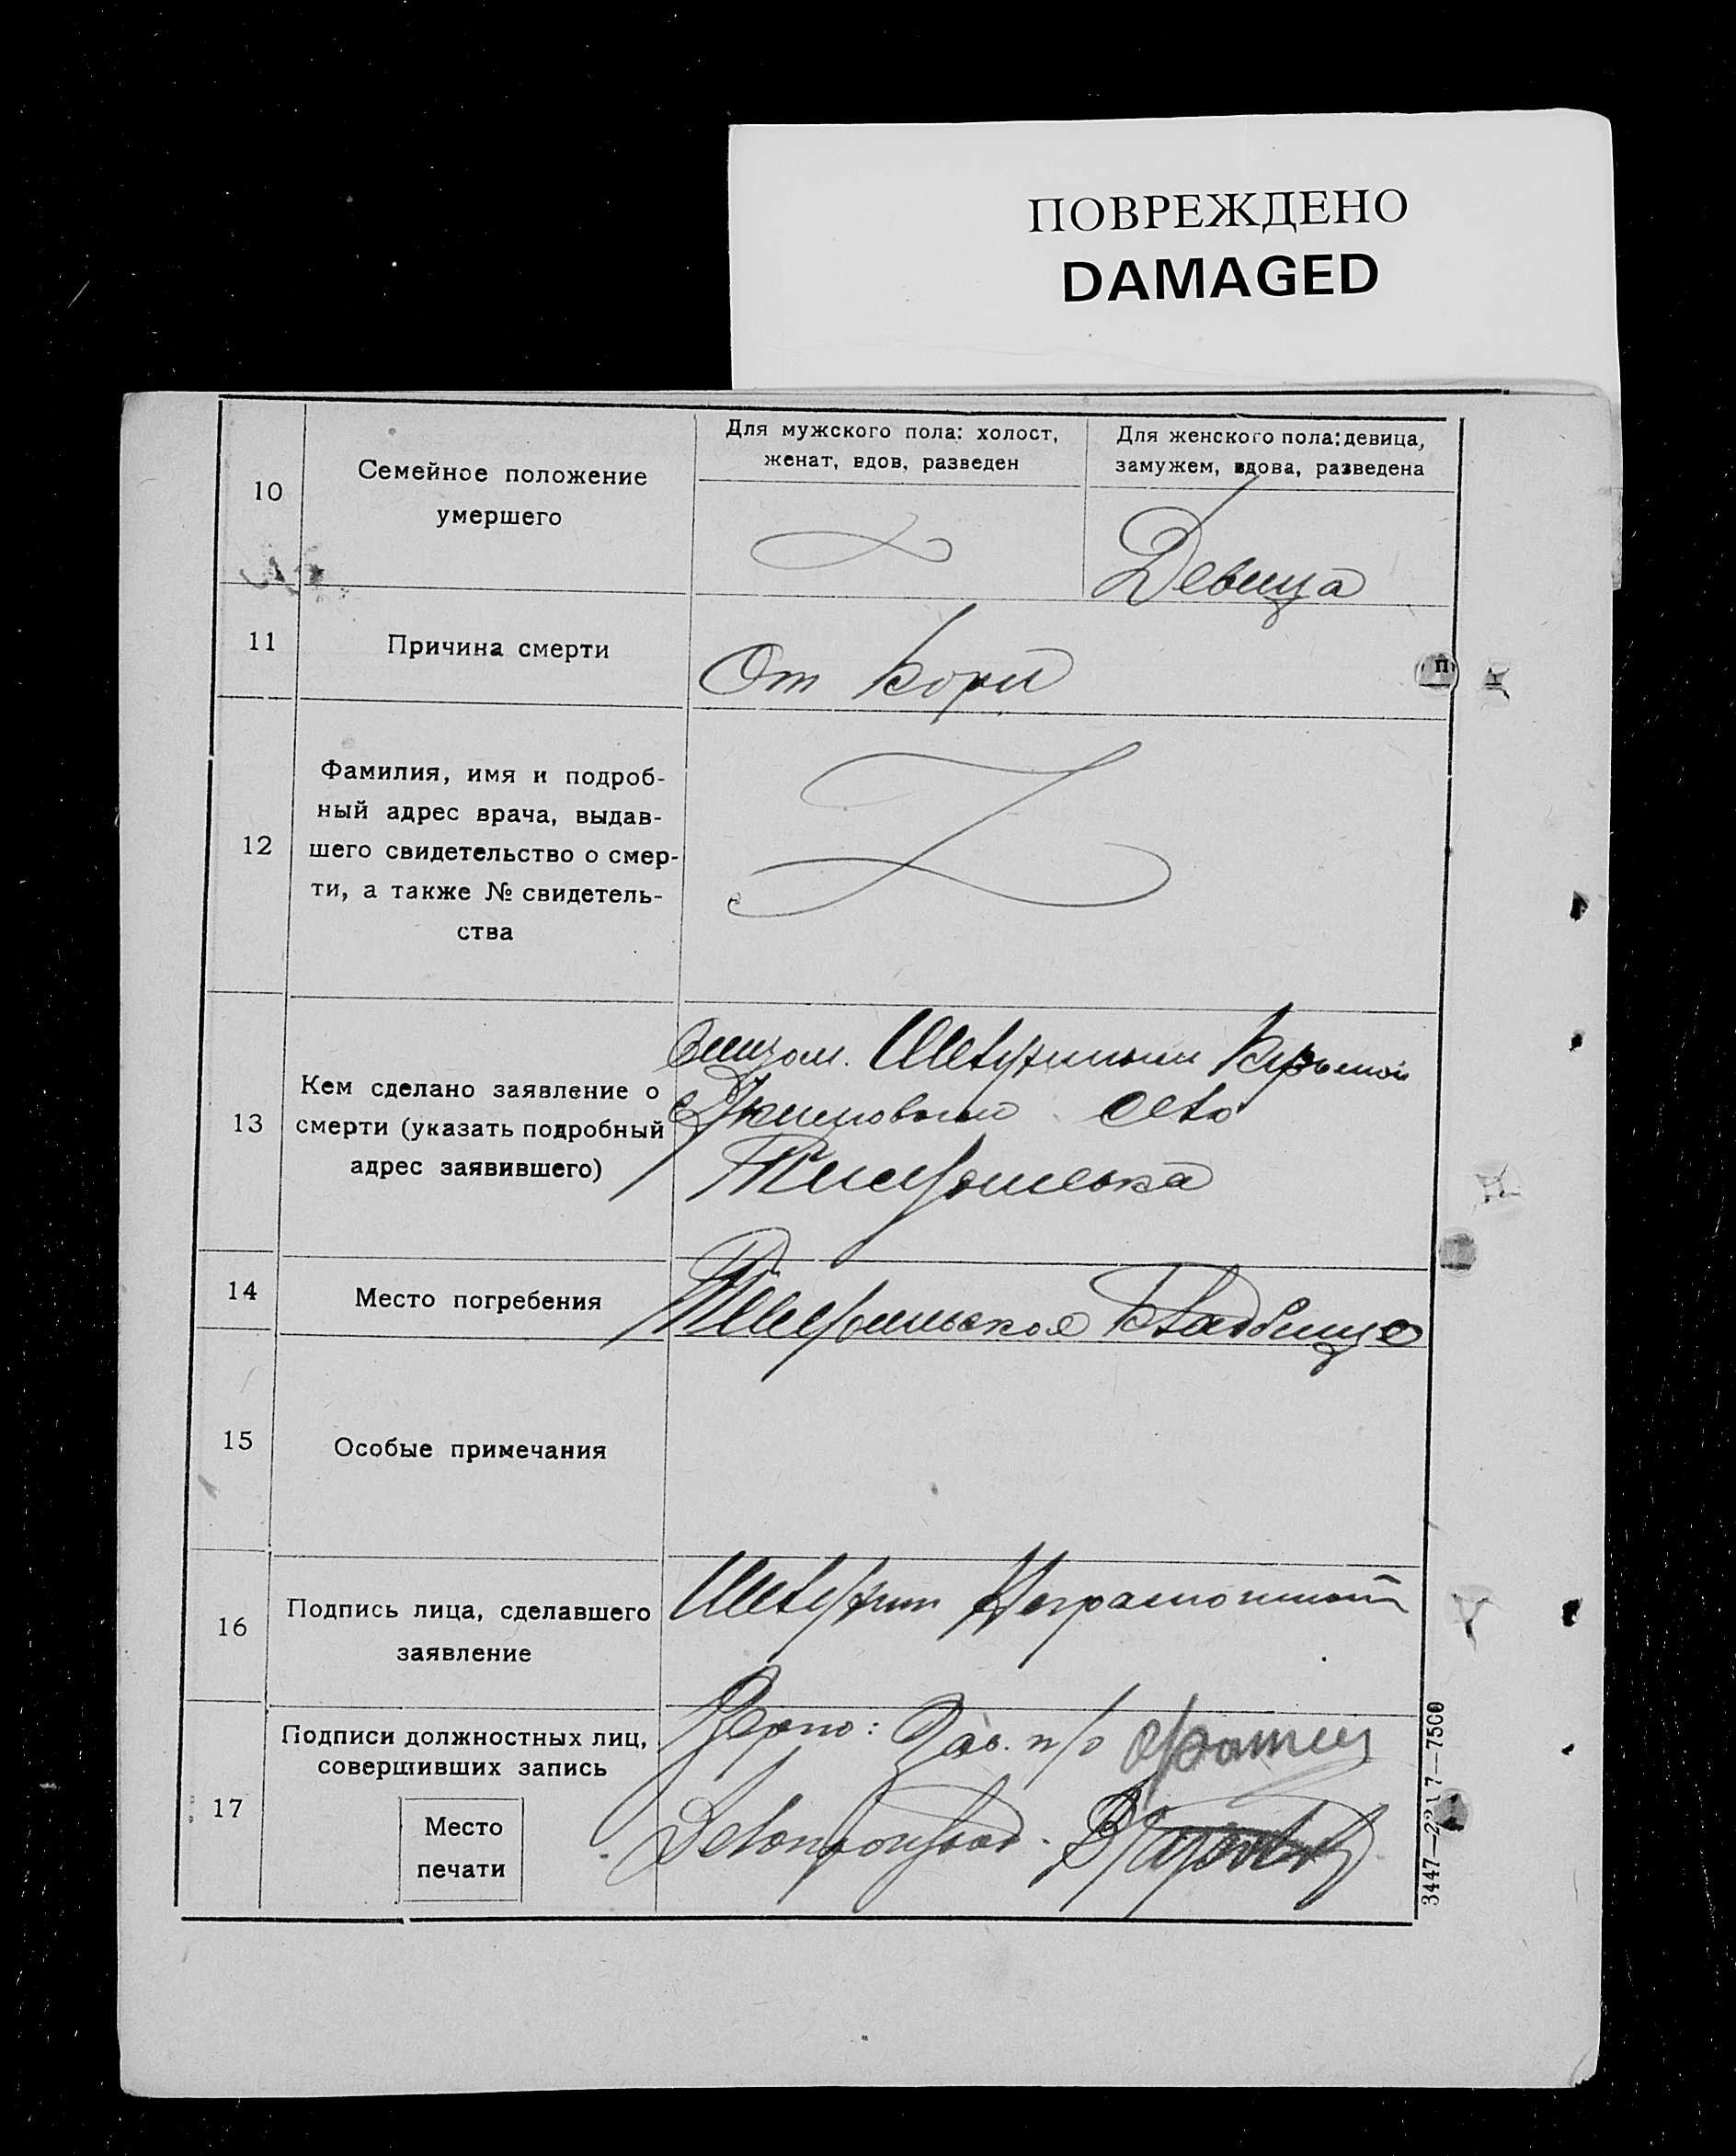 ПОВРЕЖДЕНО
DAMAGED
10
Семейное положение
умершего
Для мужского пола: холост,
женат, вдов, разведен
Для женского пола: девица,
замужем, вдова, разведена
Девица
11
Причина смерти
От кори
12
Фамилия, имя и подроб-
ный адрес врача, выдав-
шего свидетельство о смер-
ти, а также № свидетель-
ства
13
Кем сделано заявление о
смерти (указать подробный
адрес заявившего)
Отцом
14
Место погребения
Кладбище
15
Особые примечания
16
Подпись лица, сделавшего
заявление
Неграмотный
17
Подписи должностных лиц,
совершивших запись
Место
печати
Верно: Зав. п/о
Делопроизвод.
3447—2217—7500